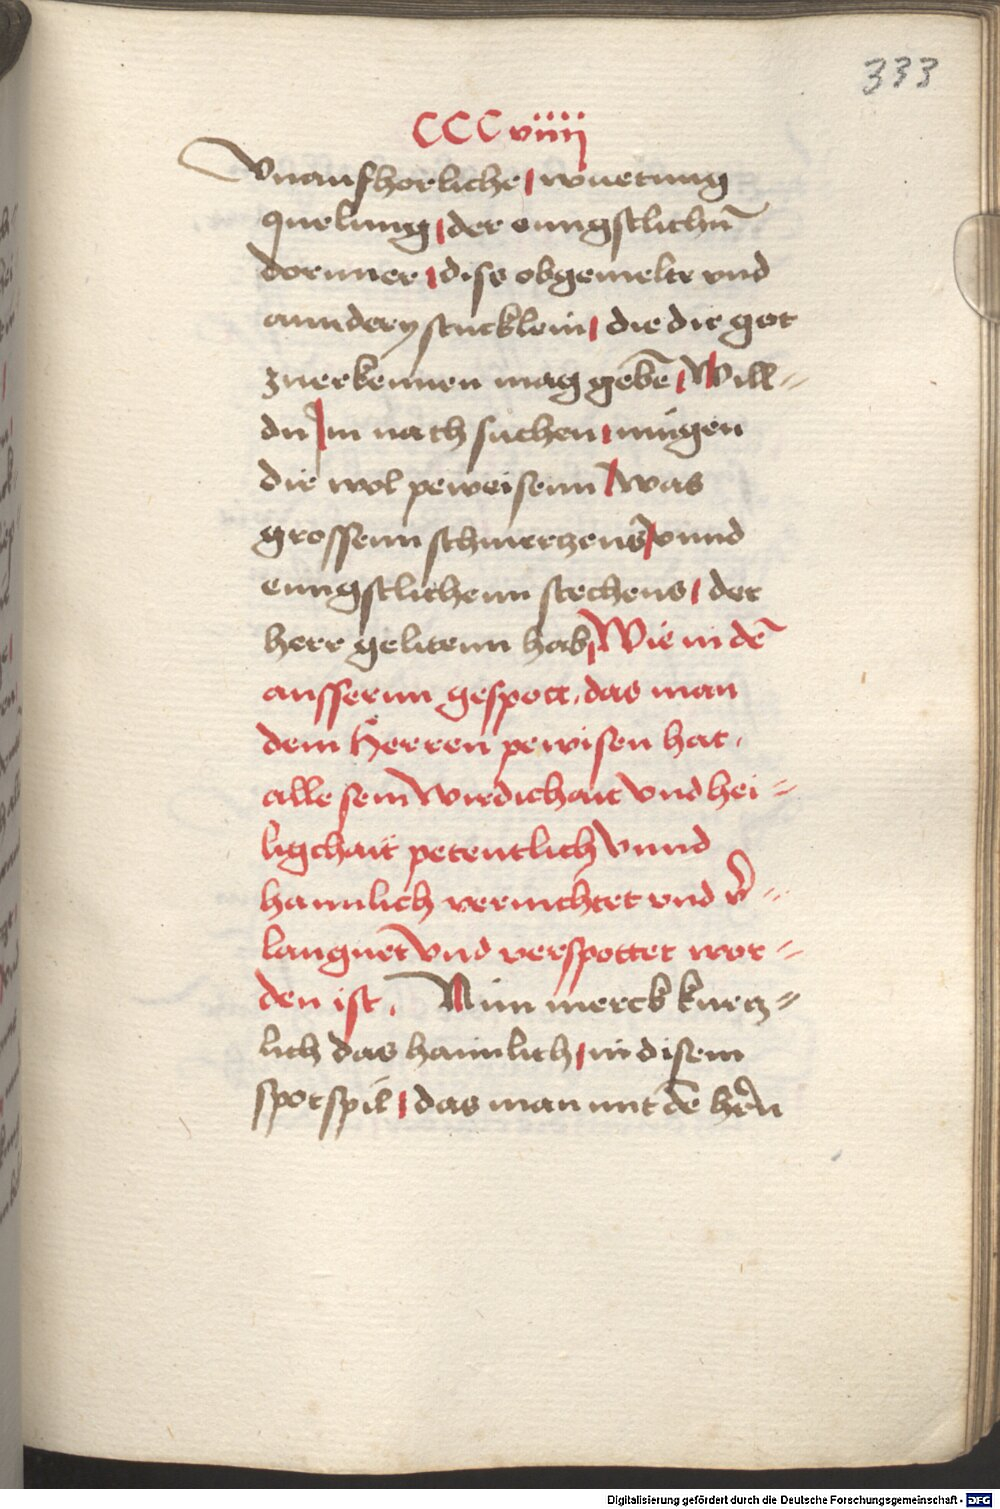 333
CCCviiii
Vnaufhorliche / wuetung
quelung / der enngstlichn̄
dornner / dise obgemelte vnd
anndery stucklein / die dir got
zuerkennen mag gebē / Will=
du Im nach suchen / mügen
dir wol peweisenn / was
grossenn schmertzens / vnnd
enngstlichenn stechens / der
herr gelitenn hab / Wie in dē
aussernn gespott, das man
dem Herren pewisen hat,
alle sein wirdichait vnd hei=
ligchait petentlich vnnd
haimlich vernichtet vnd v̄=
laugnet vnd verspottet wor=
den ist. Nun merck kurtz=
lich das haimlich / in disem
spotspil / das man mit dē hern
Digitalisierung gefördert durch die Deutsche Forschungsgemeinschaft - DFG